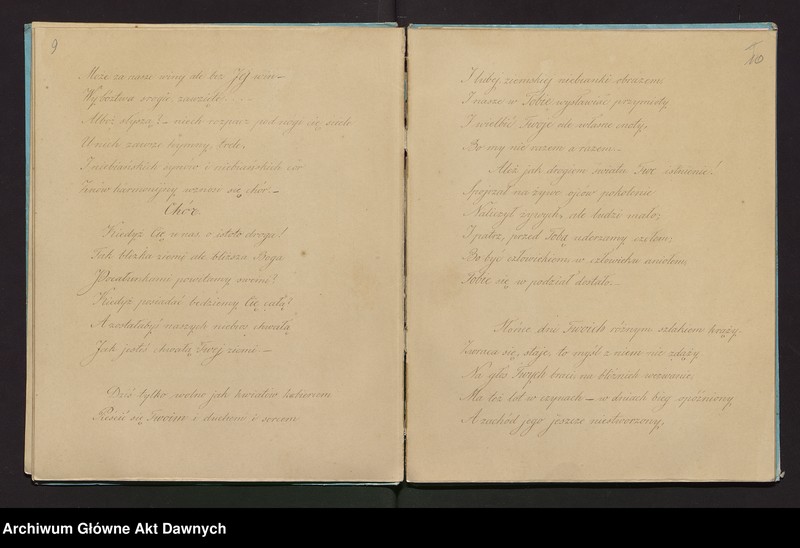 9
Może za nasze winy ale bez Jej win—
Wybóstwa srogie zawzięło . . . .
Alboż słyszą? — niech rozpacz pod nogi się ściele
U nich zawsze hymny, trele,
I niebiańskich synów i niebiańskich cór
Znów harmonijny wznosi się chór. —
Chór.
Kiedyż Cię u nas, o istoto droga!
Tak blizka ziemi ale bliższa Boga
Pocałunkami powitamy swemi?
Kiedyż posiadać będziemy Cię całą?
A zostałabyś naszych niebios chwałą
Jak jesteś chwałą Twej ziemi —
Dziś tylko wolno jak kwiatów kobiercem
Pieścić się Twoim i duchem i sercem
10
I lubej ziemskiej niebianki obrazem,
I nasze w Tobie wysławiać przymioty
I wielbić Twoje ale własne cnoty,
Bo my nie razem a razem. —
Ależ jak drogiem światu Twe istnienie!
Spojrzał na żywo ojców pokolenie
Naliczył żywych, ale ludzi mało;
I patrz, przed Tobą uderzamy czołem;
Bo być człowiekiem, w człowieku aniołem,
Tobie się w podział dostało. —
Słońce dni Twoich różnym szlakiem krąży
Zwraca się, staje, to myśl z niem nie zdąży
Na głos Twych braci, na bliźnich wezwanie.
Ma też lot w czynach — w dniach bieg opóźniony,
A zachód jego jeszcze niestworzony,
Archiwum Główne Akt Dawnych